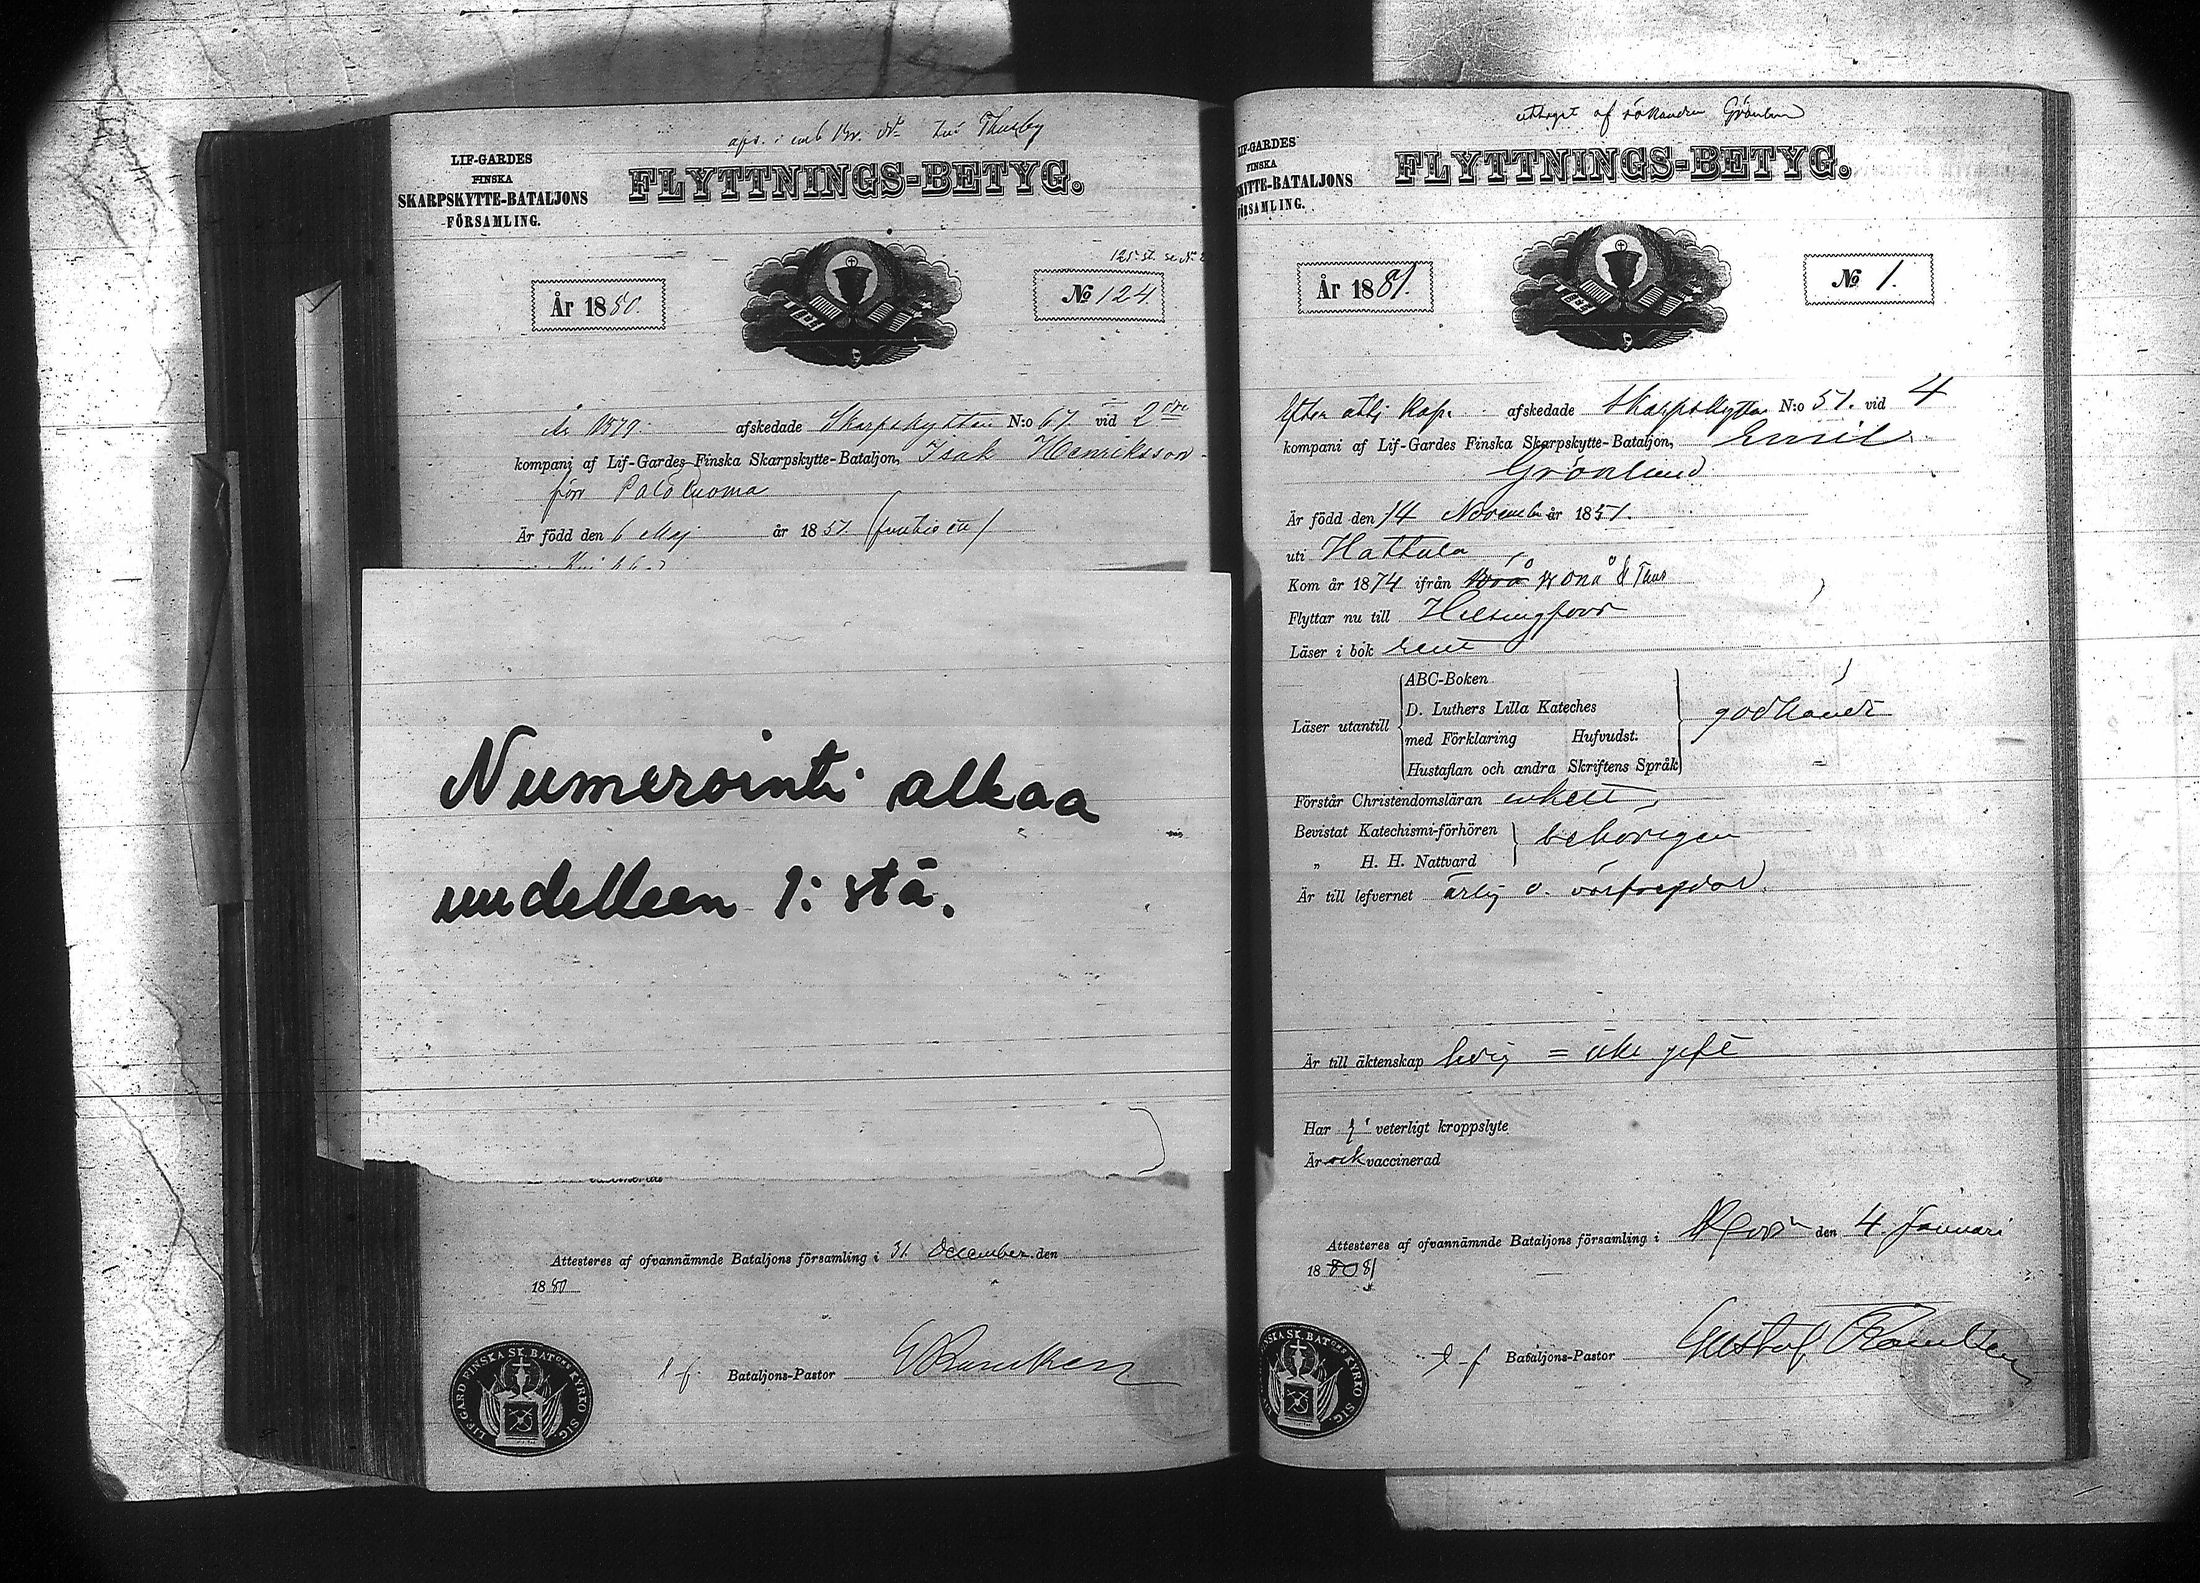 LIF-GARDES
FINSKA
SKARPSKYTTE-BATALJONS
FÖRSAMLING.
FLYTTNINGS-BETYG.
År 1880.
No 124
År 1879. afskedade Skarpskytten N:o 67. vid 2dra
kompani af Lif-Gardes Finska Skarpskytte-Bataljon, Isak Henriksson
förr
Är född den 6 Maj år 1851
Numerointi alkaa
uudelleen 1:stä.
Attesteres af ofvannämnde Bataljons församling i 31 December den
1880
t f. Bataljons-Pastor
LIF.GARD FINSKA SK. BATONS KYRKO SIG.
uttaget af sökanden Grönlund
LIF-GARDES
FINSKA
SKYTTE-BATALJONS
FÖRSAMLING.
FLYTTNINGS-BETYG.
År 1881.
No 1.
Efter afskedade Skarpskytten N:o 51. vid 4
kompani af Lif-Gardes Finska Skarpskytte-Bataljon, Emil
Grönlund
Är född den 14 November år 1851.
uti Hattula
Kom år 1874 ifrån
Flyttar nu till Helsingfors
Läser i bok rent
Läser utantill
ABC-Boken
D. Luthers Lilla Kateches
med Förklaring Hufvudst.
Hustaflan och andra Skriftens Språk
godkändt
Förstår Christendomsläran enkelt
Bevistat Katechismi-förhören
„ H. H. Nattvard
behörigen
Är till lefvernet ärlig o. välfrejdad
Är till äktenskap ledig = icke gift
Har ej veterligt kroppslyte
Är ock vaccinerad
Attesteres af ofvannämnde Bataljons församling i H:fors den 4 Januari
18 80 81
t f Bataljons-Pastor Gustaf
FINSKA SK. BATONS KYRKO SIG.